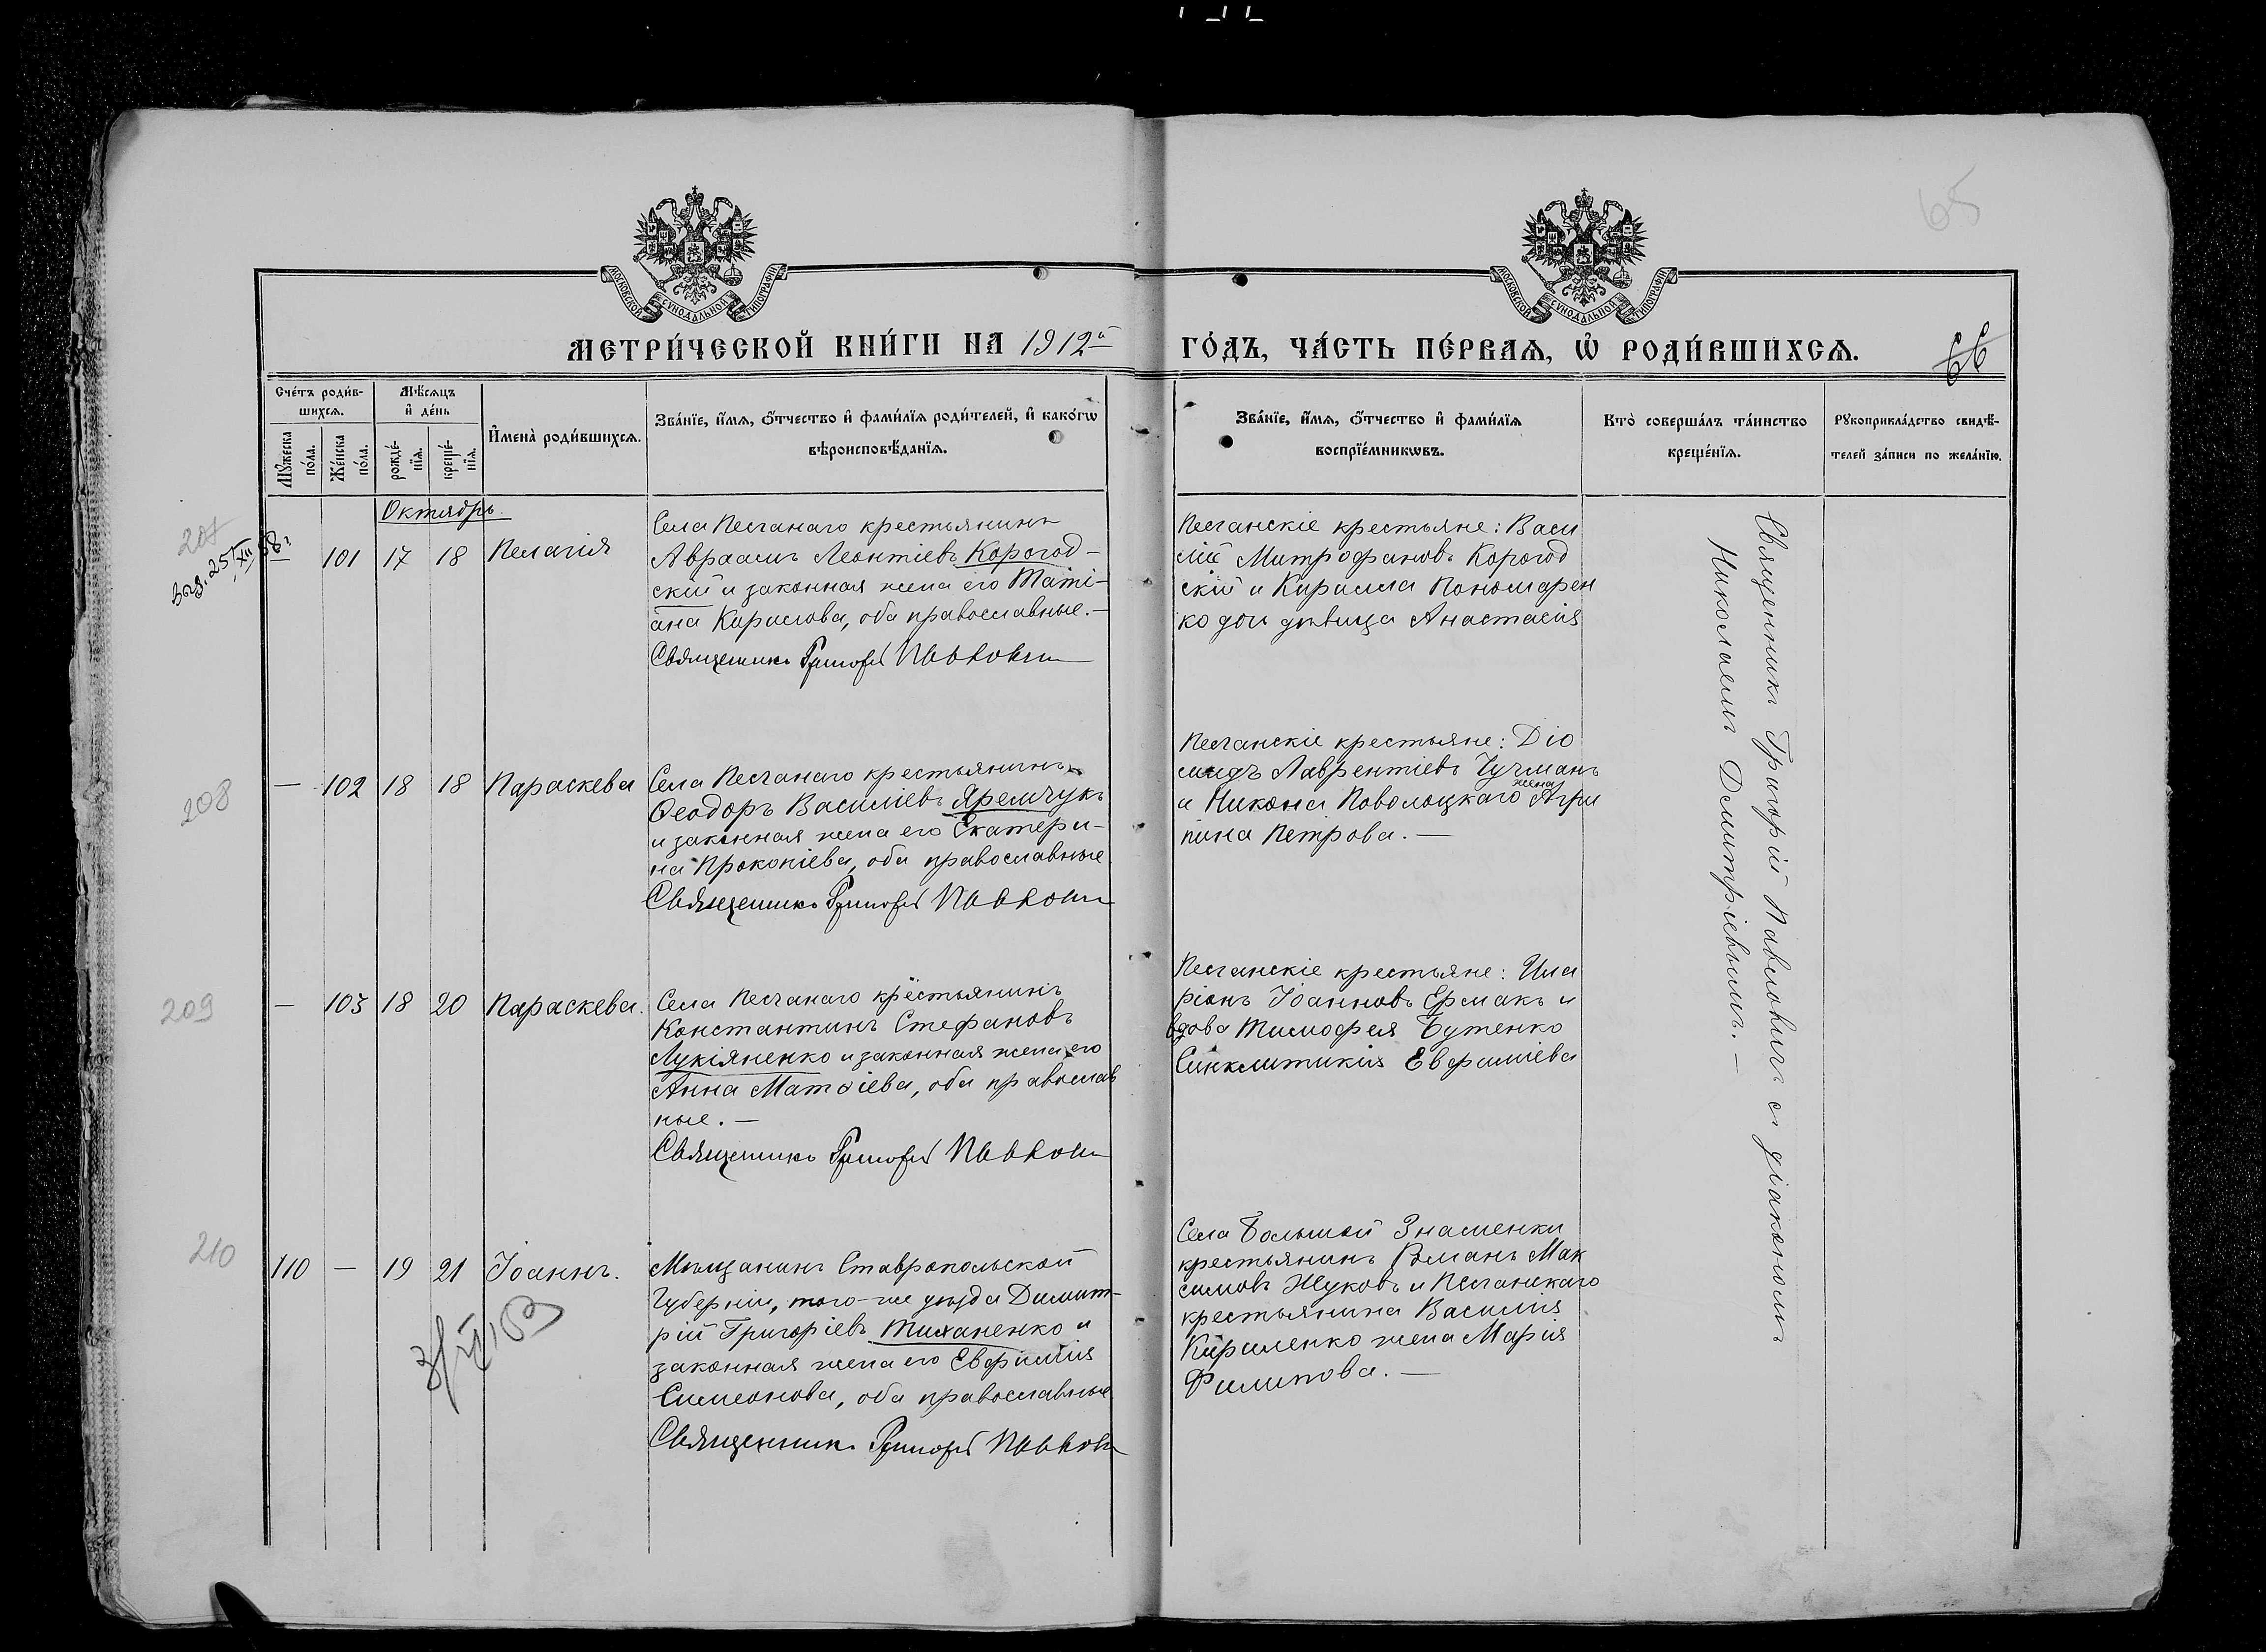 65
МОСКОВСКОЙ СѴНОДАЛЬНОЙ ТИПОГРАФІИ
МОСКОВСКОЙ СѴНОДАЛЬНОЙ ТИПОГРАФІИ
МЕТРИ́ЧЕСКОЙ КНИ́ГИ НА 1912й
ГО́ДЪ, ЧА́СТЬ ПЕ́РВАѦ, Ѡ҆ РОДИ́ВШИХСѦ.
66
Сче́тъ роди́в-
шихсѧ.
Мѣ́сѧцъ
и҆ де́нь
Мꙋ́жеска
по́ла.
Же́нска
по́ла.
рожде́-
нїѧ.
креще́-
нїѧ.
И҆мена̀ роди́вшихсѧ.
Зва́нїе, и҆́мѧ, ѻ҆́тчество и҆ фами́лїѧ роди́телей, и҆ како́гѡ
вѣроисповѣ́данїѧ.
Зва́нїе, и҆́мѧ, ѻ҆́тчество и҆ фами́лїѧ
воспрїе́мникѡвъ.
Кто̀ соверша́лъ та́инство
креще́нїѧ.
Рꙋкоприкла́дство свидѣ́-
телей за́писи по жела́нїю.
Октябрь.
207
— 101 17 18 Пелагія
Села Песчанаго крестьянинъ
Авраамъ Леонтіевъ Корогод-
скій и законная жена его Таті-
ана Карпова, оба православные.—
Священникъ Григорій Павлович
Песчанскіе крестьяне: Васи
лій Митрофановъ Корогод
скій и Кирилла Пономарен
ко дочь дѣвица Анастасія
208
— 102 18 18 Параскева
Села Песчанаго крестьянинъ
Ѳеодоръ Василіевъ Яремчукъ
и законная жена его Екатери-
на Прокопіева, оба православные
Священникъ Григорій Павлович
Песчанскіе крестьяне: Діо
мидъ Лаврентіевъ Чучманъ
и Никона Поволоцкаго жена Агри
пина Петрова.—
209
— 103 18 20 Параскева.
Села Песчанаго крестьянинъ
Константинъ Стефановъ
Лукіяненко и законная жена его
Анна Матѳіева, оба православ
ные.—
Священникъ Григорій Павлович
Песчанскіе крестьяне: Ила
ріонъ Іоанновъ Ермакъ и
вдова Тимофея Бутенко
Синклитикія Евфиміева
210
110 — 19 21 Іоаннъ.
Мѣщанинъ Ставропольской
Губерніи, того-же уѣзда Димит-
рій Григоріевъ Тиханенко и
законная жена его Евфимія
Симеонова, оба православные
Священникъ Григорій Павлович
Села Большой Знаменки
крестьянинъ Романъ Мак
симовъ Жуковъ и Песчанскаго
крестьянина Василія
Кириленко жена Марія
Филипова.—
Священникъ Григорій Павловичъ съ діакономъ
Николаемъ Димитріевымъ.—